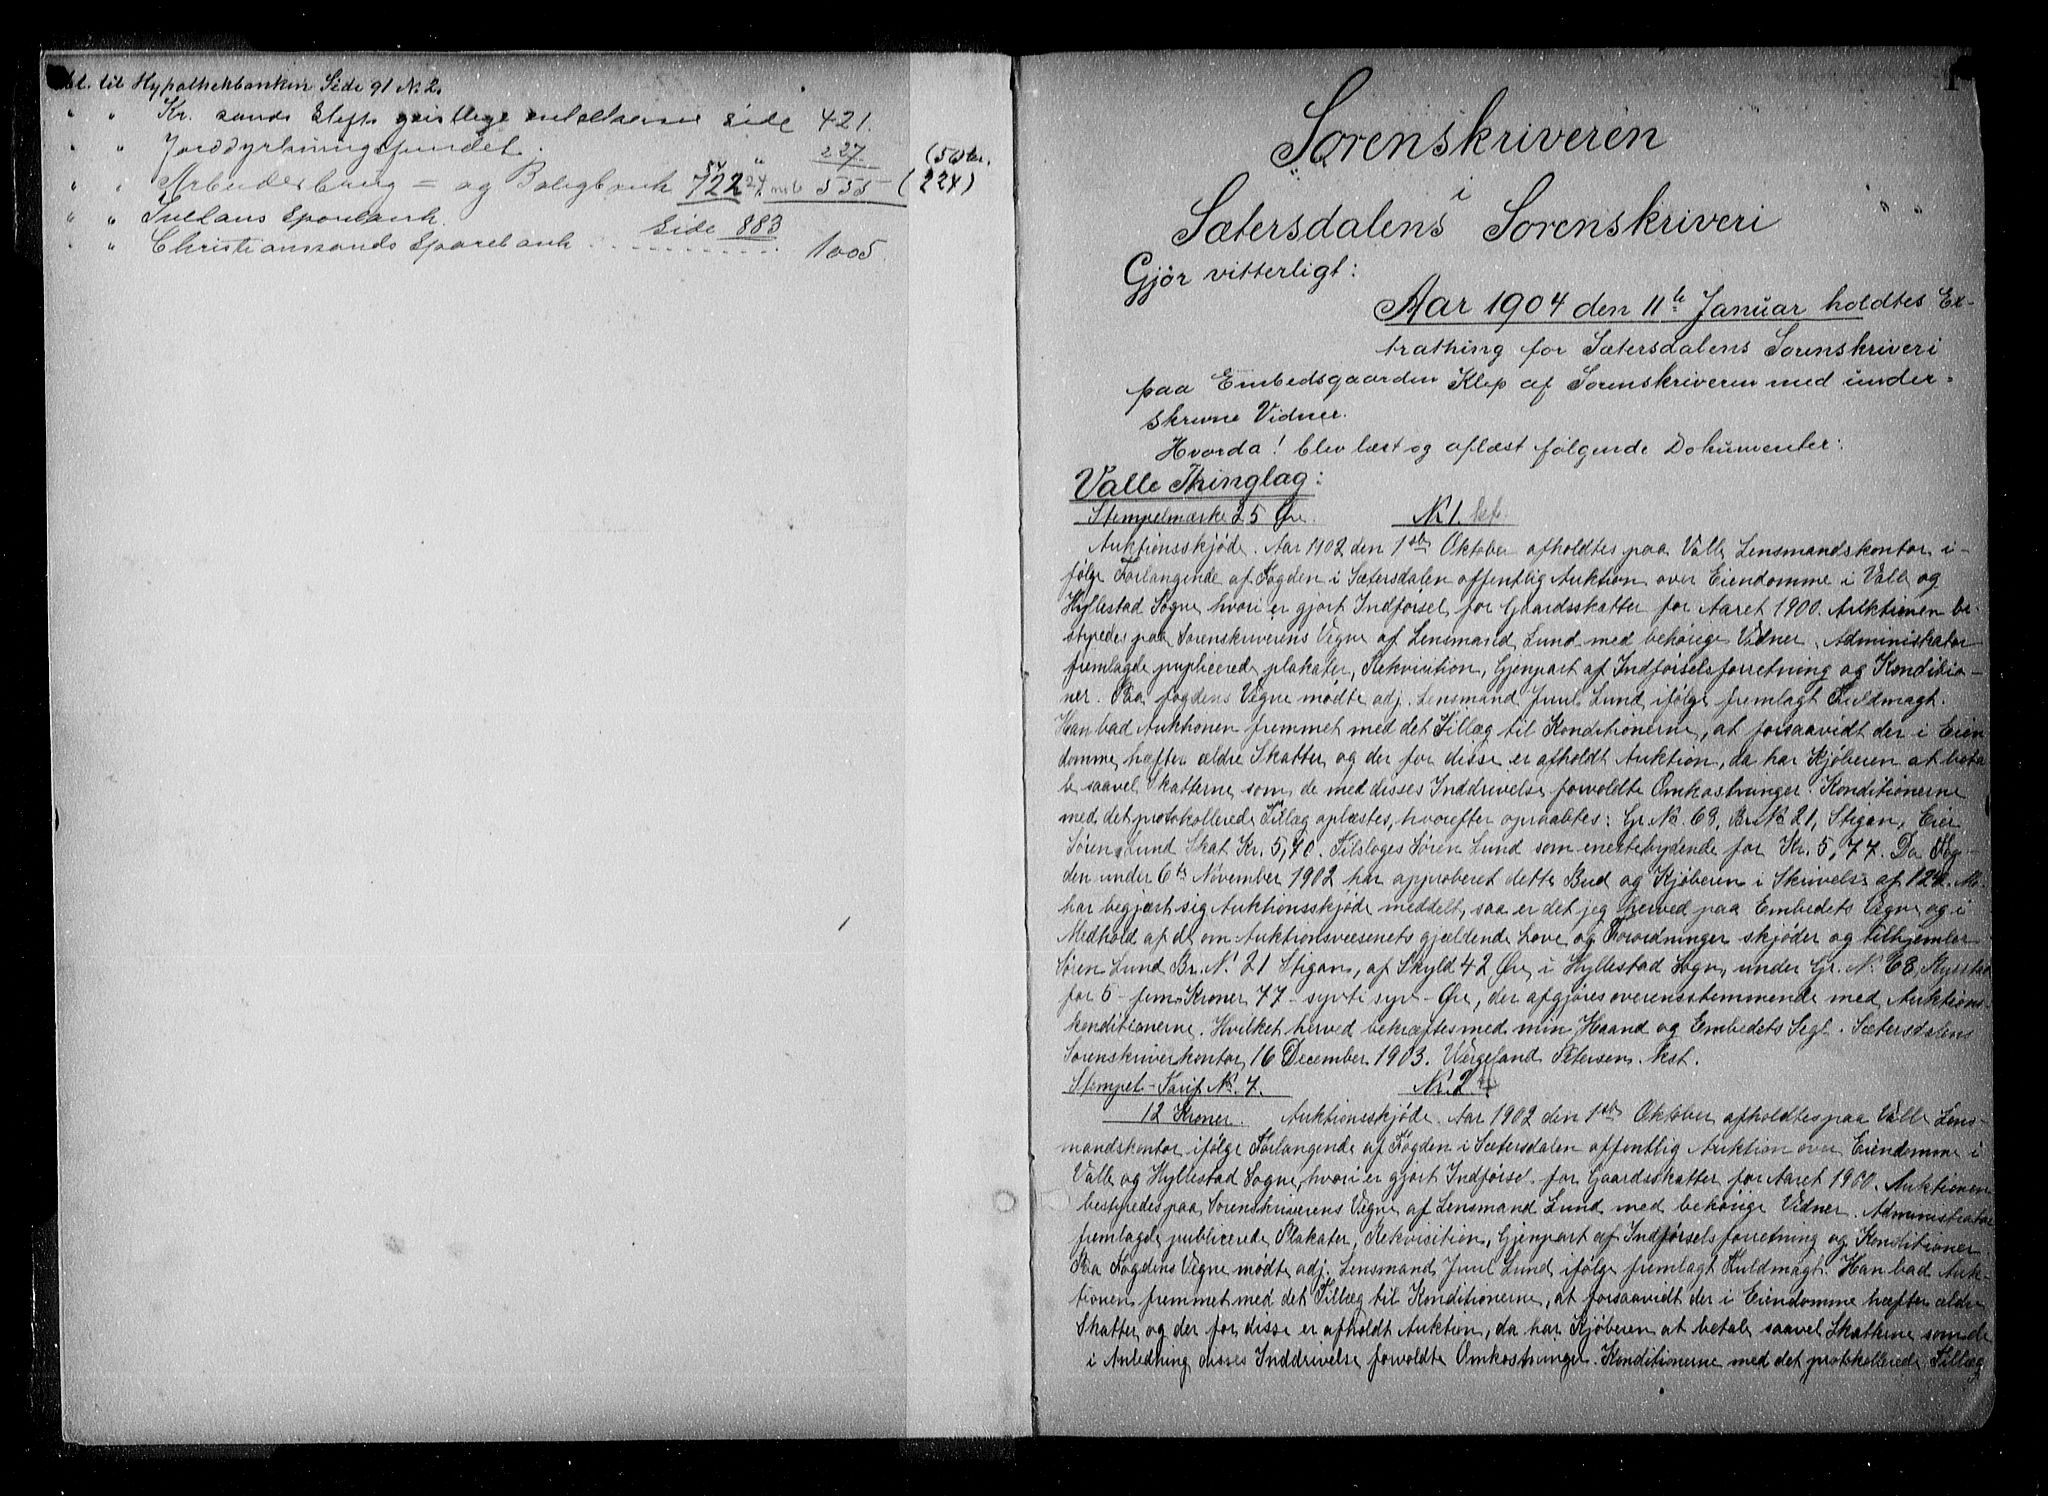 til Hypothekbanken Side 91 No. 2.
" " Kr. sands Stifts geistlige side 421.
" " Jorddyrkningsfondet. " 227 (50
" " Arbeiderbrug = og Boligbank 722 24 mb 555 (224)
" " Ivelans Sparebank. Side 883
" " Christianssands Sparebank ......... 1005.
1
Sorenskriveren
i
Sætersdalens Sorenskriveri
Gjør vitterligt:
Aar 1904 den 11te Januar holdtes Ex-
trathing for Sætersdalens Sorenskriveri
paa Embedsgaarden Klep af Sorenskriveren med under-
skrevne Vidner.
Hvorda! blev læst og aflæst følgende Dokumenter:
Valle Thinglag:
Stempelmærke 25 Øre. N. 1.
Auktionsskjøde. Aar 1902 den 1ste Oktober afholdtes paa Valle Lensmandskontor i-
følge Forlangende af Fogden i Sætersdalen offentlig Auktion over Eiendomme i Valle og
Hyllestad Sogne, hvori er gjort Indførsel for Gaardsskatter for Aaret 1900. Auktionen be-
styredes paa Sorenskriverens Vegne af Lensmand Lund med behørige Vidner. Administrator
fremlagde puplicerede plakater, Rekvisition, Gjenpart af Indførselsforretning og Konditio-
ner. Paa fogdens Vegne mødte adj. Lensmand Juul Lund ifølge fremlagt Fuldmagt.
Han bad Auktionen fremmet med det Tillæg til Konditionerne, at forsaavidt der i Eien-
domme hæfter ældre Skatter og der for disse er afholdt Auktion, da har Kjøberen at beta
le saavel Skatterne som de med disses Inddrivelse forvoldte Omkostninger. Konditionerne
med det protokollerede Tillæg oplæstes, hvorefter opraabtes: Gr. No. 68, Br. N. 21, Stigan, Eier
Søren Lund Skat Kr. 5,70. Tilsloges Søren Lund som enestebydende for Kr. 5,77. Da Fog-
den under 6te November 1902 har approberet dette Bud og Kjøberen i Skrivelse af 12te
har begjært sig Auktionsskjøde meddelt, saa er det jeg herved paa Embedets Vegne og i
Medhold af de om Auktionsvæsenets gjældende Love og Forordninger skjøder og tilhjemler
Søren Lund Br. N. 21 Stigan, af Skyld 42 Øre, i Hyllestad Sogn, under Gr. N. 68, Rysstad
for 5 - fem - Kroner 77 - syvti syv - Øre, der afgjøres overensstemmende med Auktions-
konditionerne. Hvilket herved bekræftes med min Haand og Embedets Segl. Sætersdalens
Sorenskriverkontor, 16 December 1903. Vergeland Petersen. kst.
Stempel-Tarif No. 7. Nr. 2
12 Kroner. Auktionsskjøde. Aar 1902 den 1ste Oktober afholdtes paa Valle Lens-
mandskontor ifølge Forlangende af Fogden i Sætersdalen offentlig Auktion over Eiendomme i
Valle og Hyllestad Sogne, hvori er gjort Indførsel for Gaardsskatter for Aaret 1900. Auktionen
bestyredes paa Sorenskriverens Vegne af Lensmand Lund med behørige Vidner. Administrator
fremlagde publicerede Plakater, Rekvisition, Gjenpart af Indførselsforretning og Konditioner.
Paa Fogdens Vegne mødte adj. Lensmand Juul Lund ifølge fremlagt Fuldmagt. Han bad Auk-
tionen fremmet med det Tillæg til Konditionerne, at forsaavidt der i Eiendomme hæfter ældre
Skatter og der for disse er afholdt Auktion, da har Kjøberen at betale saavel Skatterne som de
i Anledning disses Inddrivelse forvoldte Omkostninger. Konditionerne med det protokollerede Tillæg